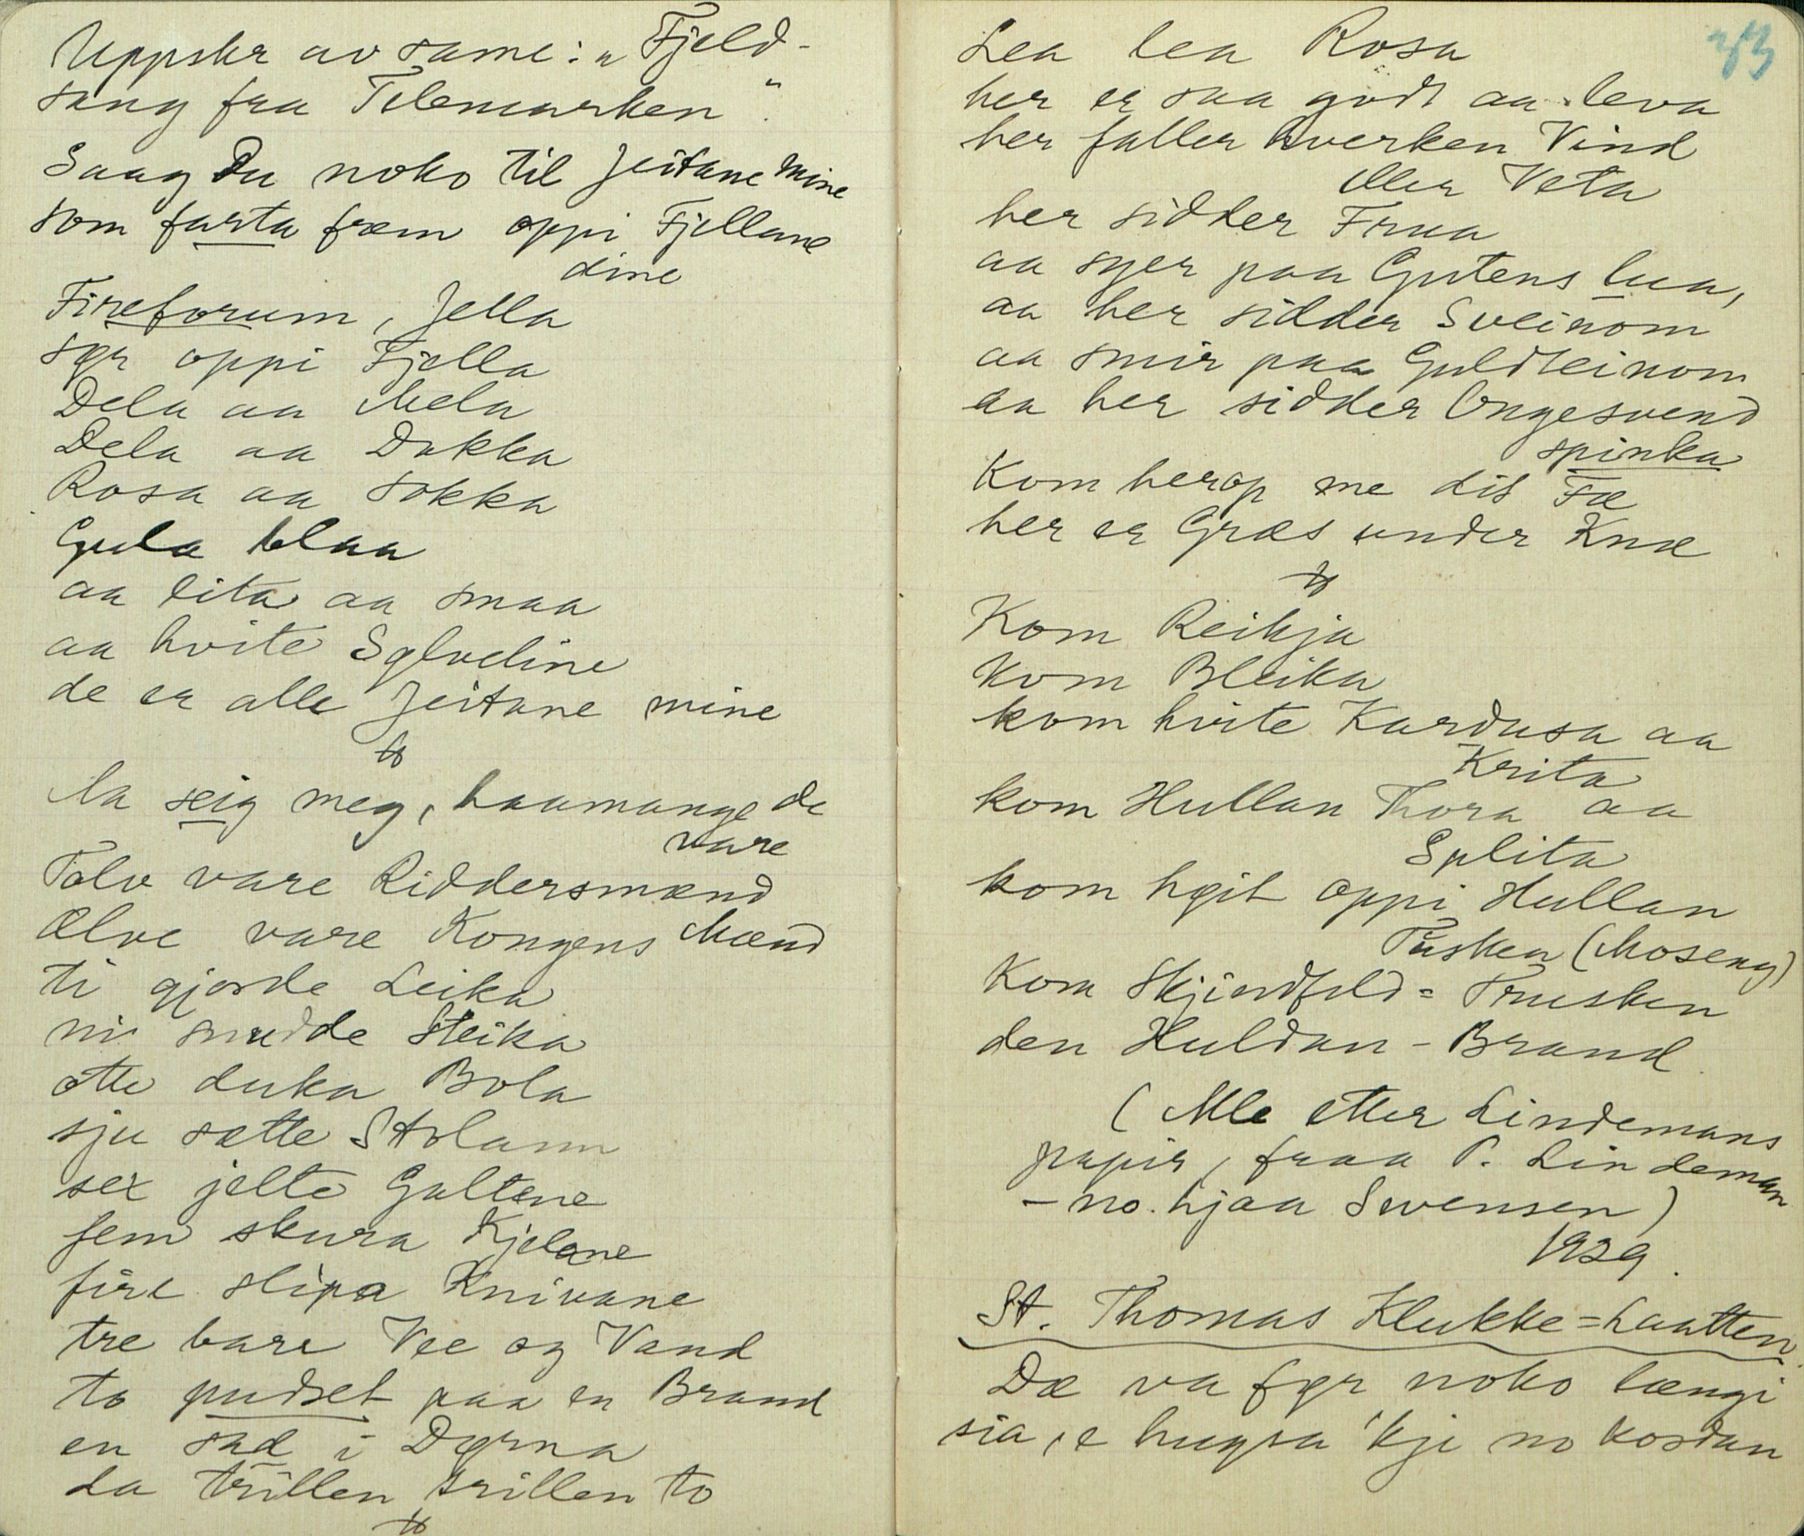 Uppskr av same: „Fjeld-
sang fra Telemarken".
Saag Du noko til Jeitane mine
som farta fræm oppi Fjellane
dine
Fireforum, Jella
sør oppi Fjella
Dela aa Mela
Dela aa Dokka
Rosa aa Sokka
Gula blaa
aa lita aa smaa
aa hvite Sølveline
de er alle Jeitane mine
La seig meg, haamange de
vare
Tolv vare Riddersmænd
Ælve vare Kongens Mænd
ti gjorde Leika
ni snudde Steika
otte duka Bola
sju sætte Stolann
sex jelte Galtene
fem skura Kjelane
fire slipa Knivane
tre bare Vee og Vand
to pudset paa en Brand
en sad i Dørna
da trillen trillen to
33
Lea lea Rosa
her er saa godt aa leva
her faller hverken Vind
eller Veta
her sidder Frua
aa syer paa Gutens lua,
aa her sidder Sveinom
aa smir paa Guldteinom
aa her sidder Ongesvend
spinka
Kom herop me dit Fæ
her er Græs under Knæ
Kom Reikja
Kom Bleika
kom hvite Kardusa aa
Krita
kom Hullan Thora aa
Splita
kom høit oppi Hullan
Pusken (Moseng)
Kom Skjindfeld=Trusken
den Huldan-Brand
(Alle etter Lindemans
papir, fraa P. Lindeman
– no hjaa Svensen)
1929.
St. Thomas Klukke=Laatten.
Dæ va før noko længi
sia, e hugsa 'kje no kosdan